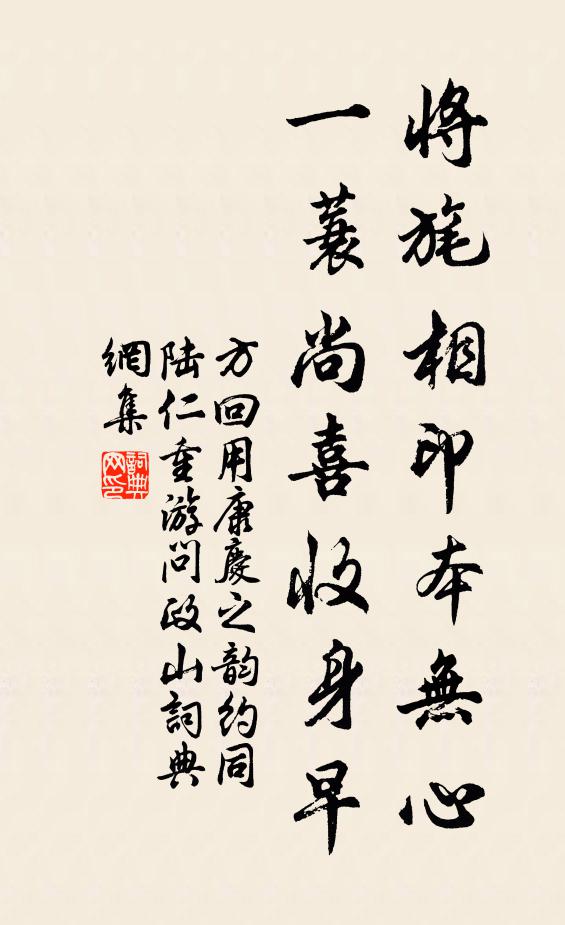 將旄相印本無心
一蓑尚喜收身早
方回用康慶之韵約同
陆仁重游问政山詞典
網集
詞典網印